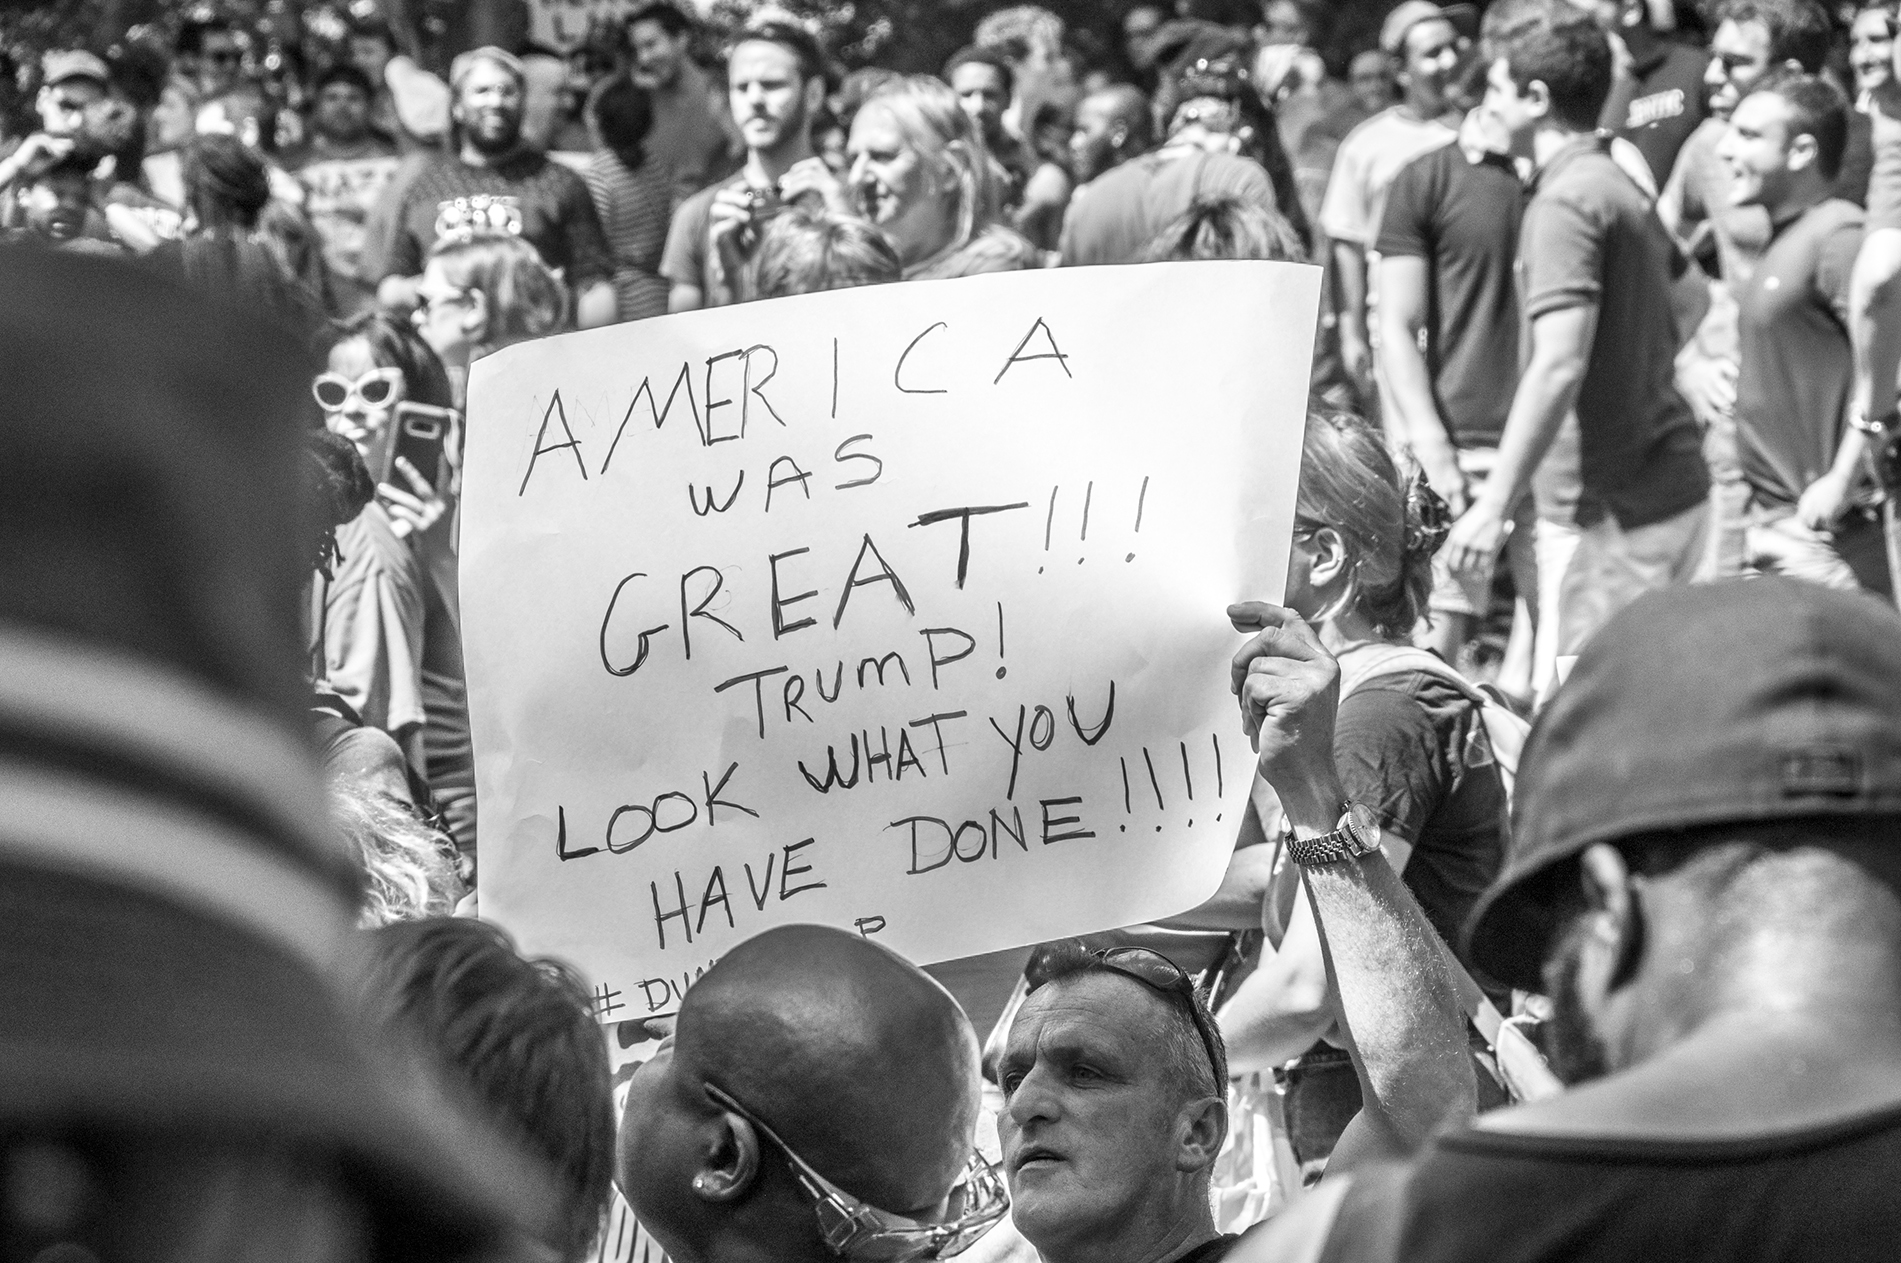 AMERICA
WAS
GREAT!!!
TRUMP!
LOOK WHAT YOU
HAVE DONE!!!!